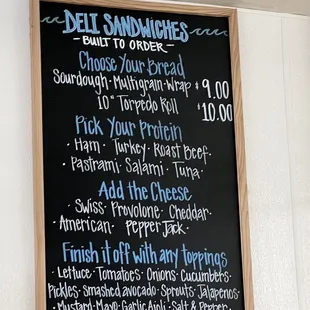 DELI SANDWICHES
- BUILT TO ORDER -
Choose Your Bread
Sourdough · Multigrain · Wrap $9.00
10" Torpedo Roll $10.00
Pick Your Protein
· Ham · Turkey · Roast Beef ·
· Pastrami · Salami · Tuna ·
Add the Cheese
Swiss · Provolone · Cheddar ·
· American · Pepper Jack ·
Finish it off with any toppings
Lettuce · Tomatoes · Onions · Cucumbers
Pickles · Smashed avocado · Sprouts · Jalapenos
· Mustard · Mayo · Garlic Aioli · Salt & Pepper ·